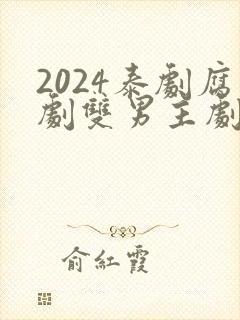 2024泰劇腐
劇雙男主劇
俞紅霞